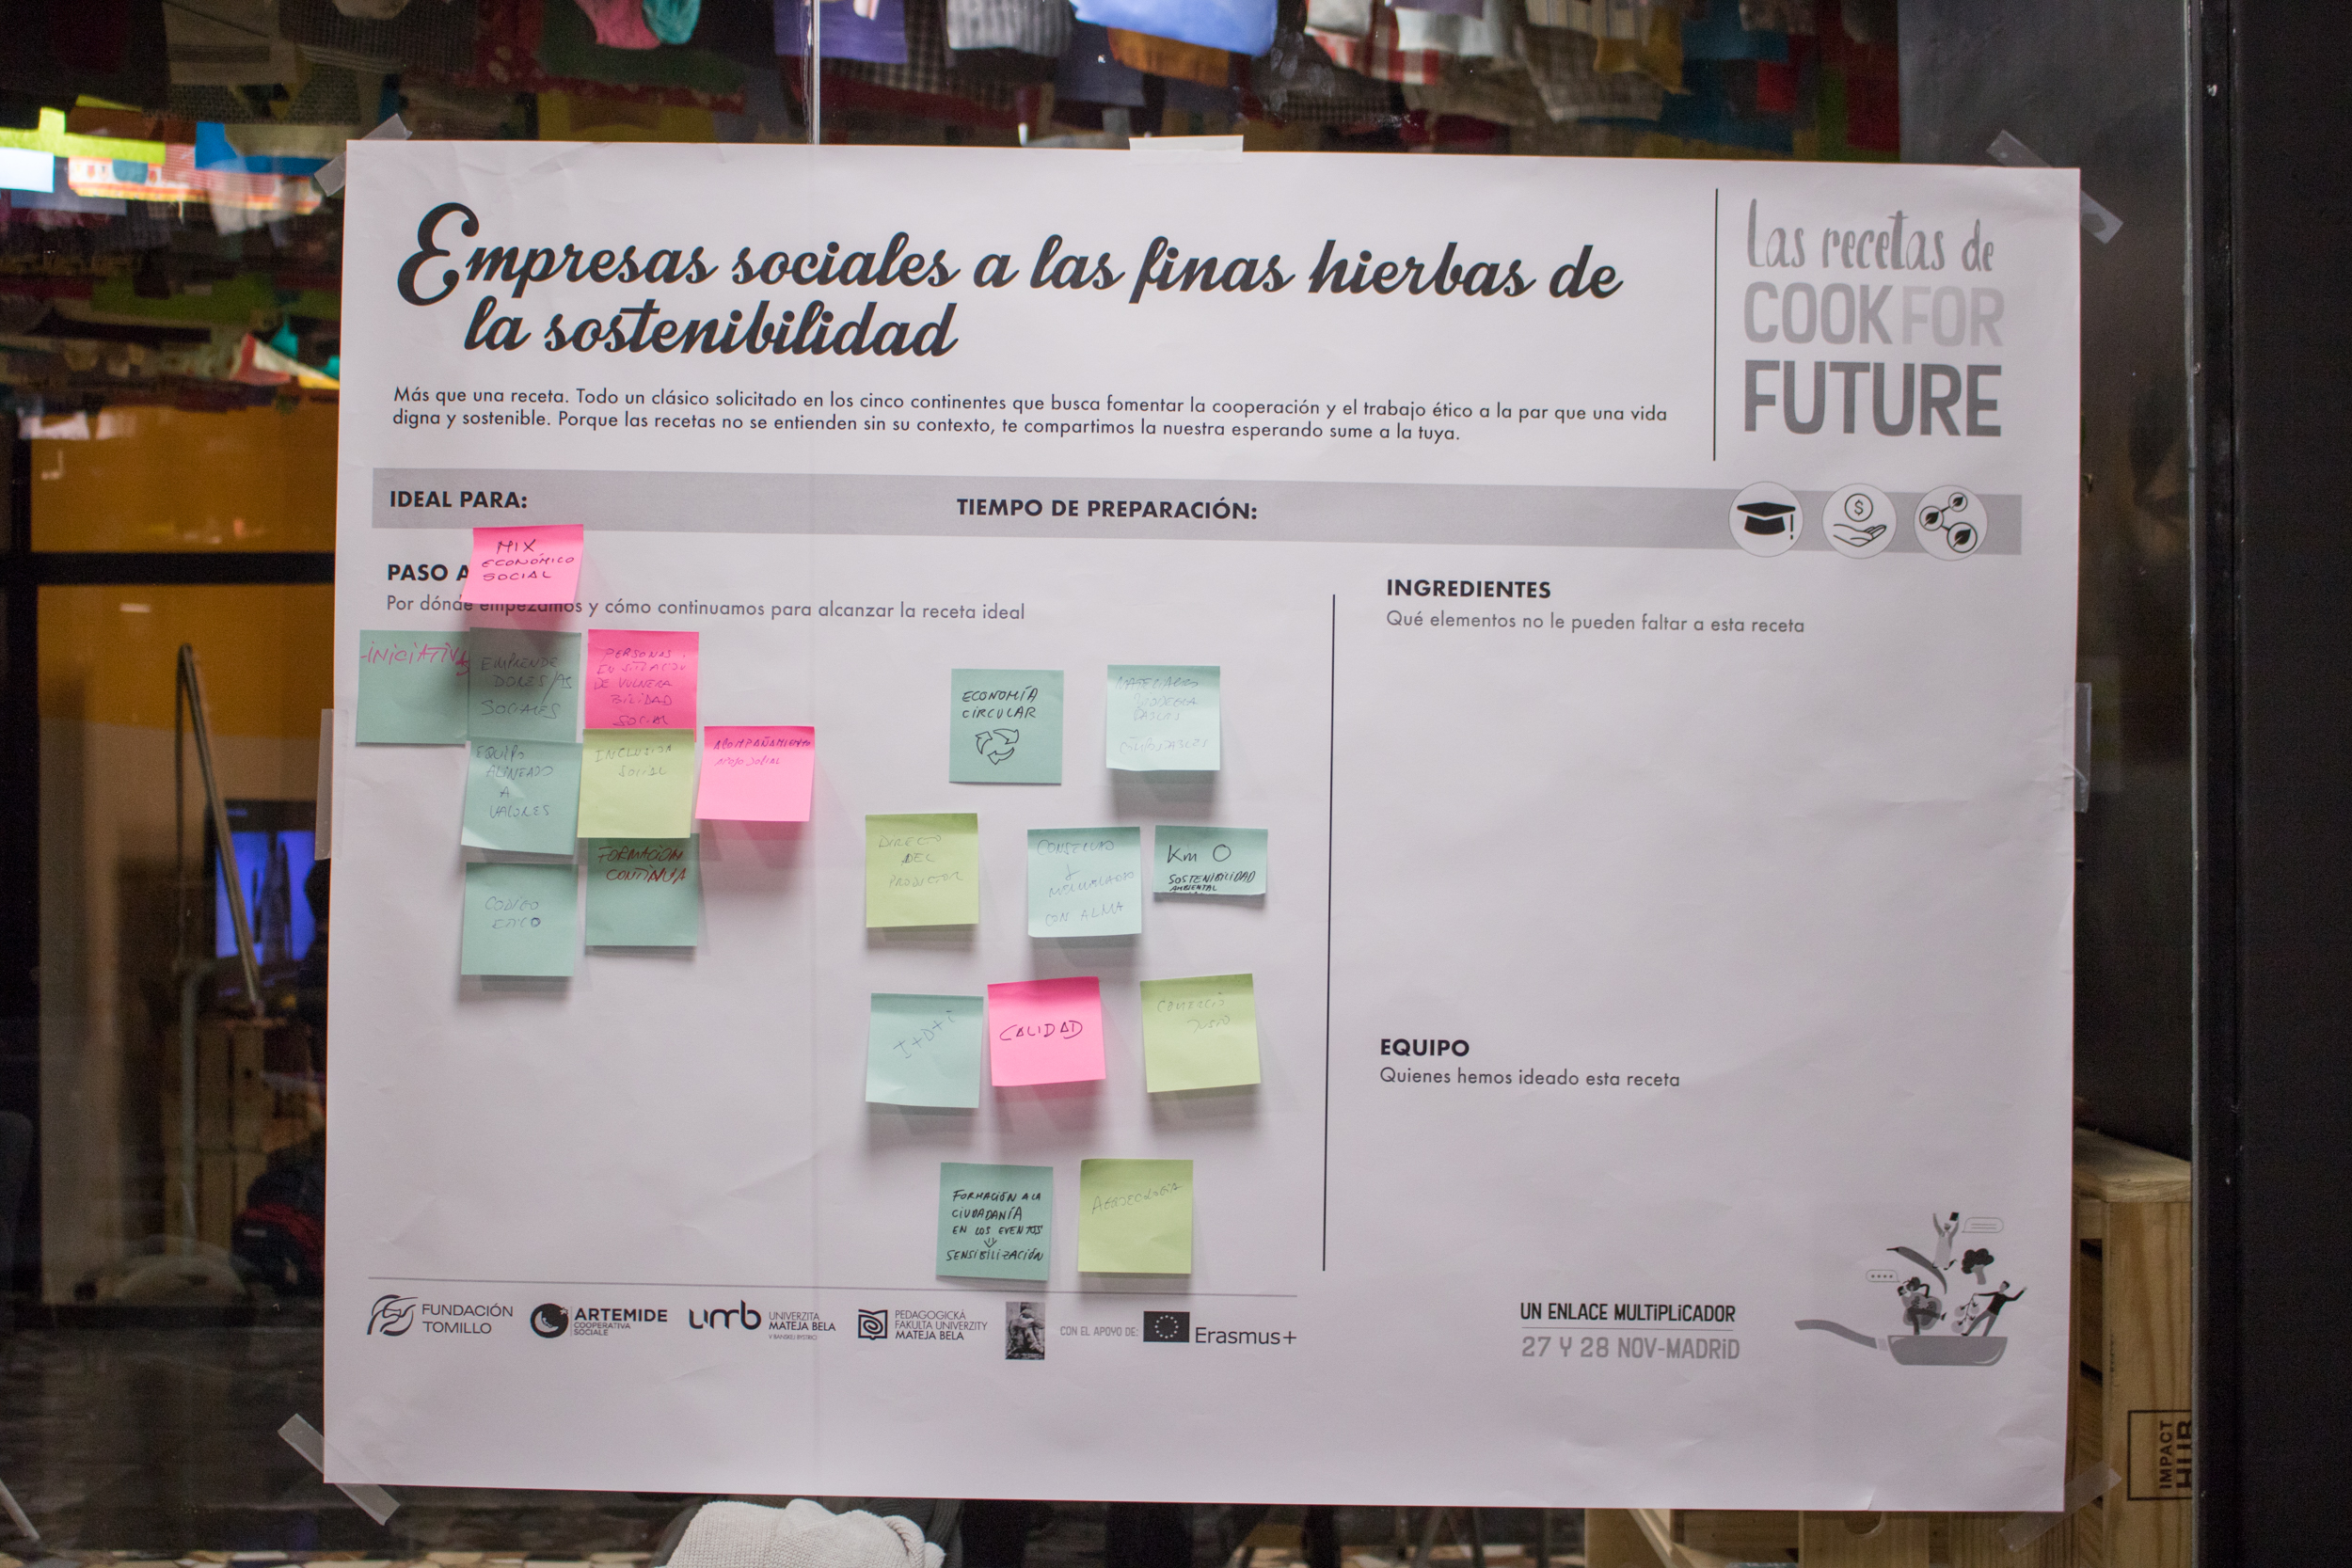 Empresas sociales a las finas hierbas de
la sostenibilidad
Las recetas de
COOK FOR
FUTURE
Más que una receta. Todo un clásico solicitado en los cinco continentes que busca fomentar la cooperación y el trabajo ético a la par que una vida
digna y sostenible. Porque las recetas no se entienden sin su contexto, te compartimos la nuestra esperando sume a la tuya.
IDEAL PARA:
TIEMPO DE PREPARACIÓN:
MIX
ECONÓMICO
SOCIAL
PASO A
Por dónde empezamos y cómo continuamos para alcanzar la receta ideal
INICIATIVA
EMPRENDE
DORES/AS
SOCIALES
PERSONAS
EN SITUACIÓN
DE VULNERA
BILIDAD
SOCIAL
EQUIPO
ALINEADO
A
VALORES
INCLUSIÓN
SOCIAL
ACOMPAÑAMIENTO
APOYO SOCIAL
CODIGO
ETICO
FORMACIÓN
CONTINUA
ECONOMÍA
CIRCULAR
MATERIALES
BIODEGRA
DABLES
DIRECTO
DEL
PRODUCTOR
CONSERVAS
Y
MERMELADAS
CON ALMA
Km 0
SOSTENIBILIDAD
AMBIENTAL
I+D+i
CALIDAD
COMERCIO
JUSTO
FORMACIÓN A LA
CIUDADANÍA
EN LOS EVENTOS
SENSIBILIZACIÓN
AGROECOLOGÍA
INGREDIENTES
Qué elementos no le pueden faltar a esta receta
EQUIPO
Quienes hemos ideado esta receta
FUNDACIÓN
TOMILLO
ARTEMIDE
COOPERATIVA
SOCIALE
umb
UNIVERZITA
MATEJA BELA
V BANSKEJ BYSTRICI
PEDAGOGICKÁ
FAKULTA UNIVERZITY
MATEJA BELA
CON EL APOYO DE:
Erasmus+
UN ENLACE MULTiPLiCADOR
27 Y 28 NOV-MADRiD
IMPACT
HUB